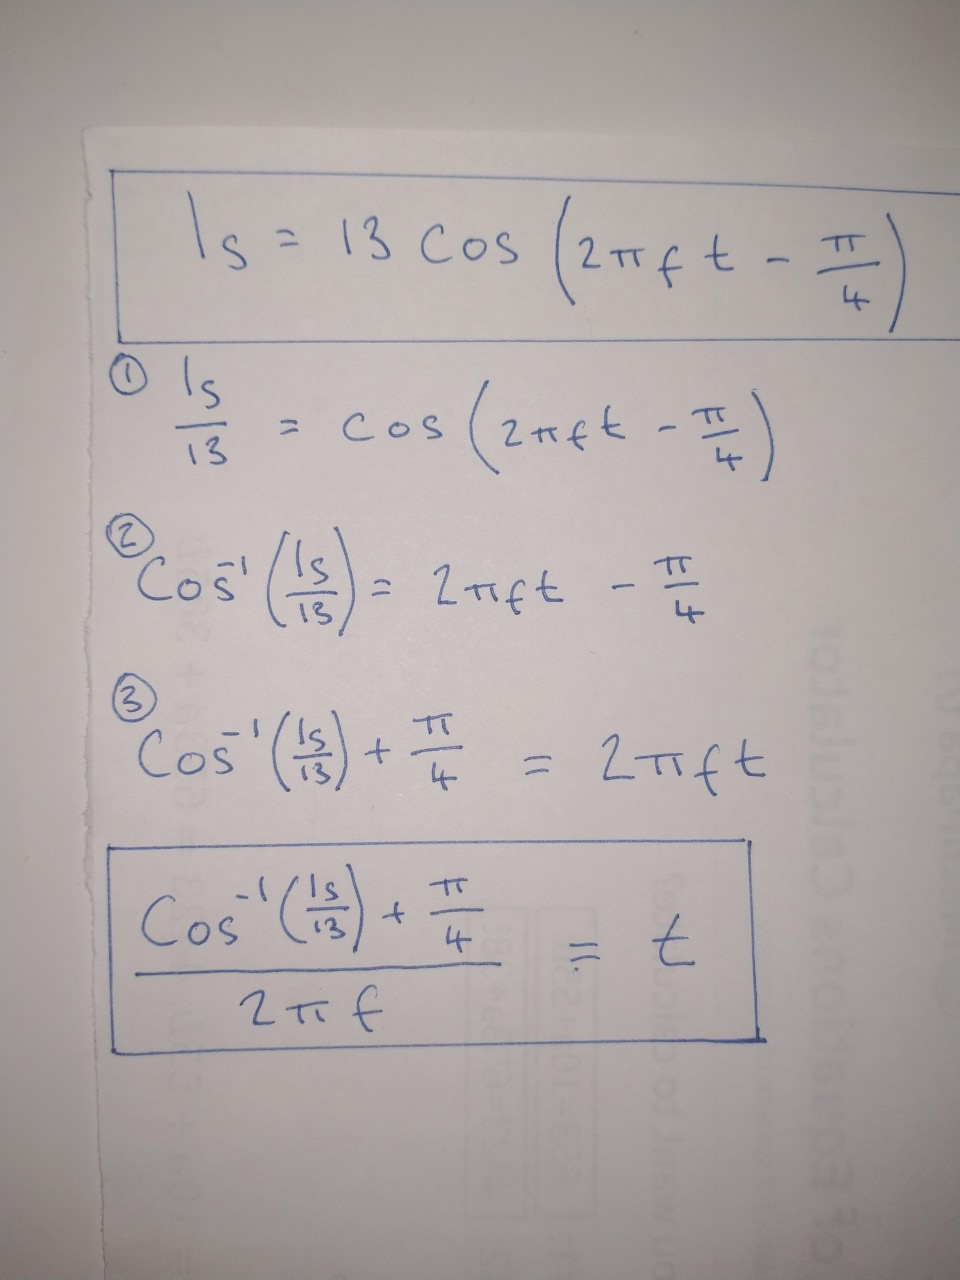 Is = 13 cos (2πft - π/4)
① Is/13 = cos (2πft - π/4)
② Cos⁻¹ (Is/13) = 2πft - π/4
③ Cos⁻¹ (Is/13) + π/4 = 2πft
(Cos⁻¹ (Is/13) + π/4) / 2πf = t